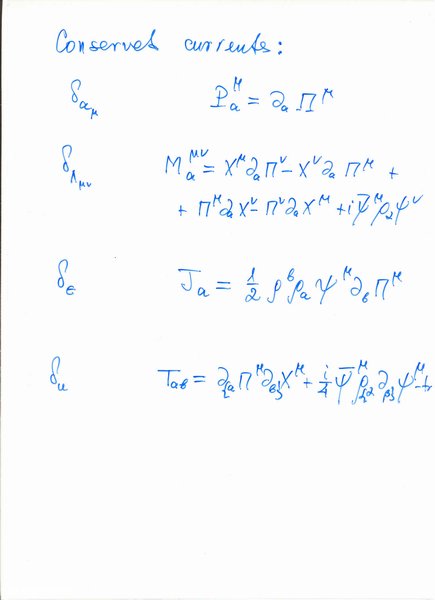 Conservet currents:
δ_{a_μ} P_a^μ = ∂_a Π^μ
δ_{Λ_{μν}} M_a^{μν} = X^μ ∂_a Π^ν − X^ν ∂_a Π^μ +
+ Π^μ ∂_a X^ν − Π^ν ∂_a X^μ + i ψ̄^μ ρ_a ψ^ν
δ_ε J_a = 1/2 ρ^b ρ_a ψ^μ ∂_b Π^μ
δ_u T_{ab} = ∂_{{a} Π^μ ∂_{b}} X^μ + i/4 ψ̄^μ ρ_{{a} ∂_{b}} ψ^μ − tr